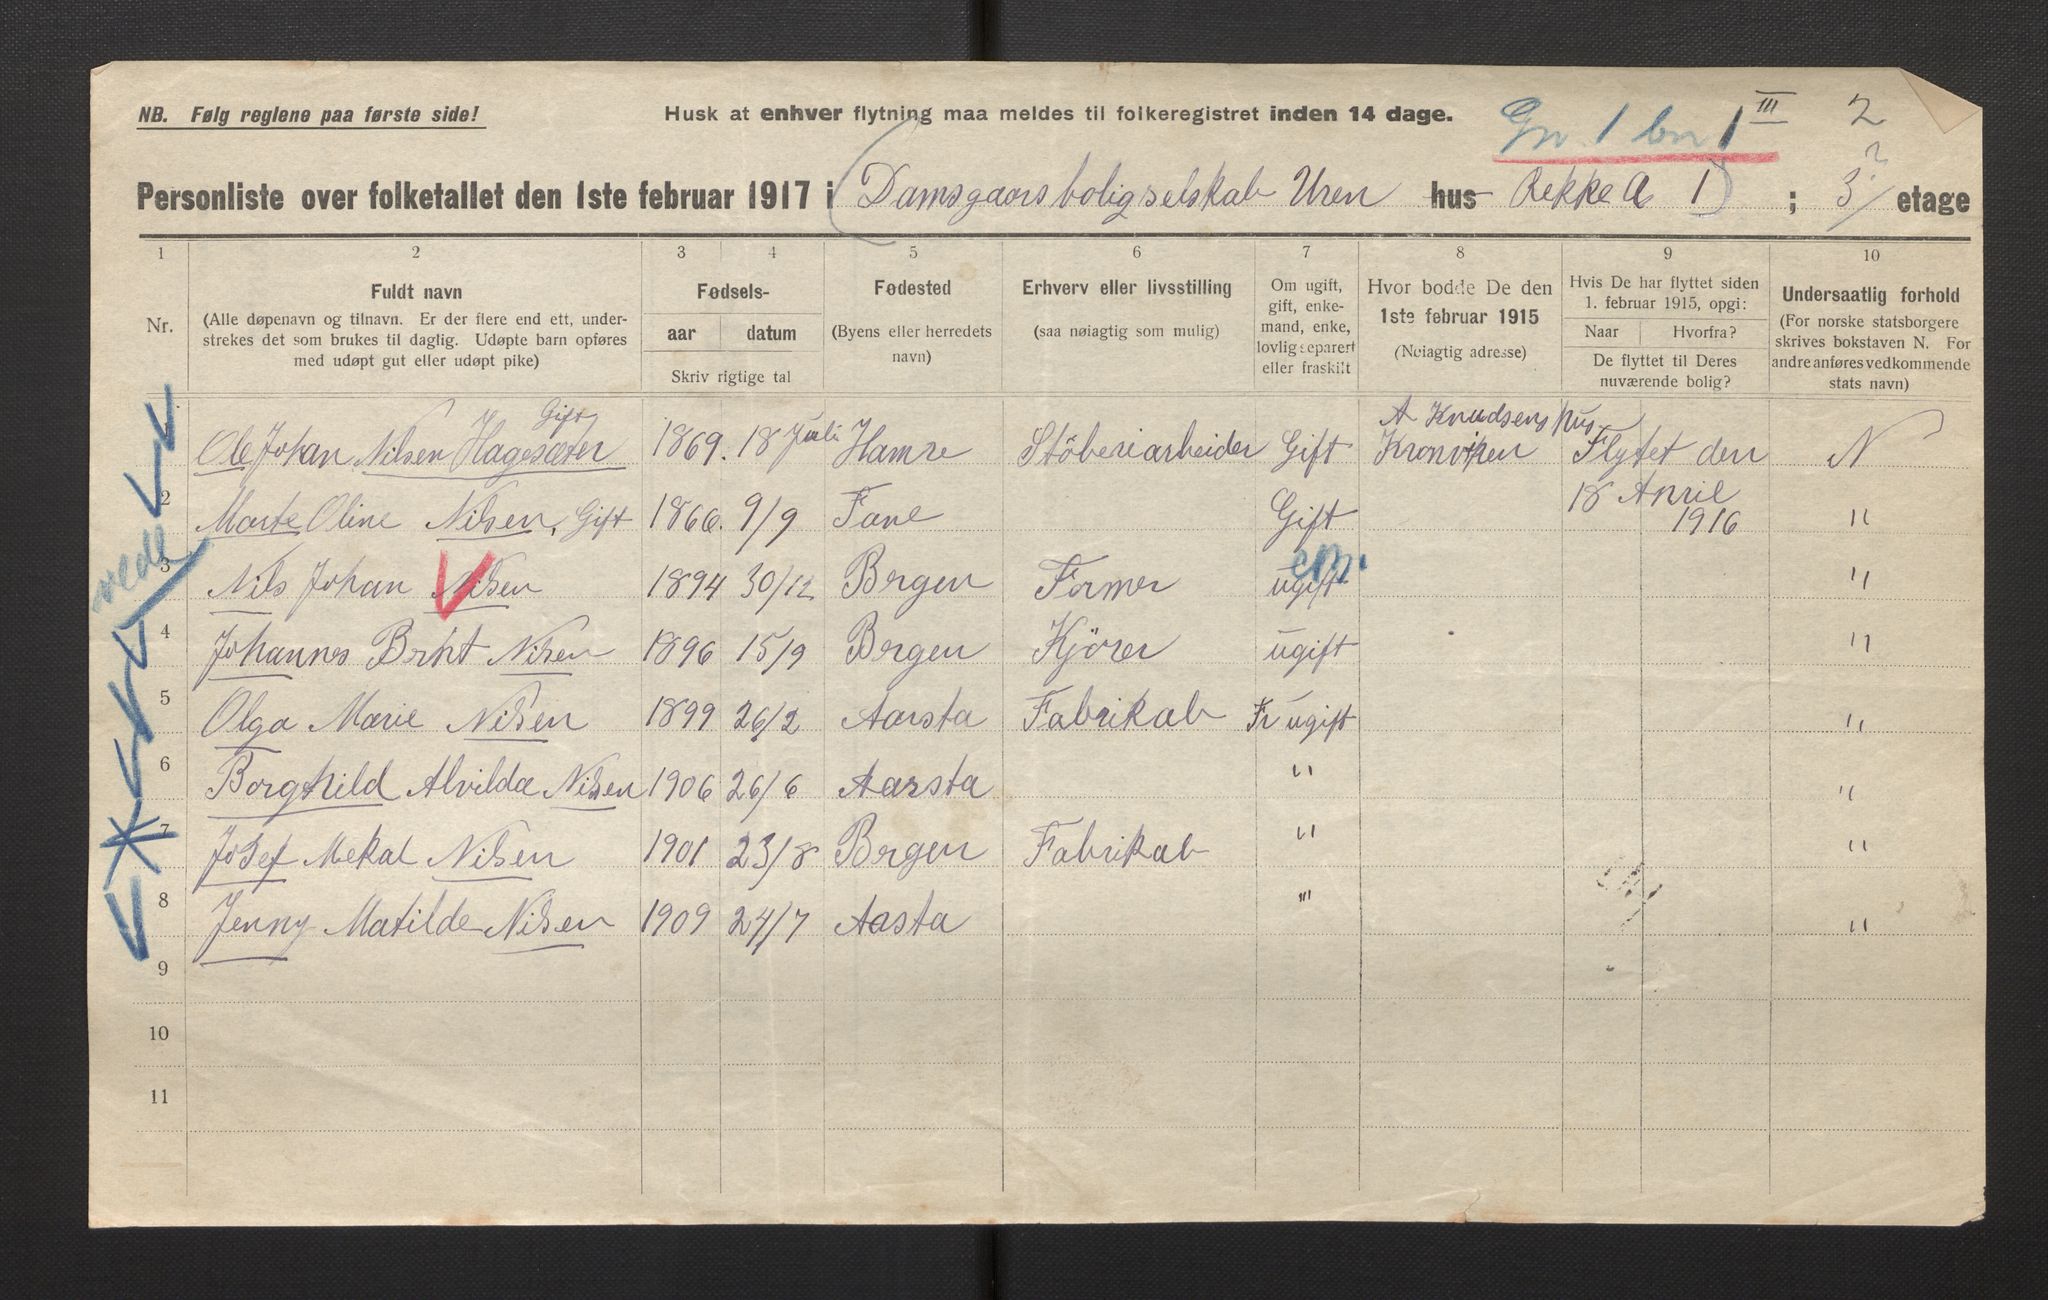 NB. Følg reglene paa første side!
Husk at enhver flytning maa meldes til folkeregistret inden 14 dage.
Gn 1 bn 1 III
2
Personliste over folketallet den 1ste februar 1917 i (Damsgaarsboligselskab Uren hus Rekke A 1) ; 3 ? etage
1 2 3 4 5 6 7 8 9 10
Nr.
Fuldt navn
(Alle døpenavn og tilnavn. Er der flere end ett, under-
strekes det som brukes til daglig. Udøpte barn opføres
med udøpt gut eller udøpt pike)
Fødsels-
aar datum
Skriv rigtige tal
Fødested
(Byens eller herredets
navn)
Erhverv eller livsstilling
(saa nøiagtig som mulig)
Om ugift,
gift, enke-
mand, enke,
lovlig separert
eller fraskilt
Hvor bodde De den
1ste februar 1915
(Nøiagtig adresse)
Hvis De har flyttet siden
1. februar 1915, opgi:
Naar Hvorfra?
De flyttet til Deres
nuværende bolig?
Undersaatlig forhold
(For norske statsborgere
skrives bokstaven N. For
andre anføres vedkommende
stats navn)
Gift
A Knudsens hus
1 Ole Johan Nilsen Hagesæter 1869. 18 Juli Hamre Stöberiarbeider Gift Kronviken Flytet den N
18 April
2 Marte Oline Nilsen, Gift 1866. 9/9 Fane Gift 1916 "
3 Nils Johan Nilsen 1894 30/12 Bergen Former ugift "
4 Johannes Brht Nilsen 1896 15/9 Bergen Kjörer ugift "
5 Olga Marie Nilsen 1899 26/2 Aarsta Fabrikab Fr ugift "
6 Borghild Alvilda Nilsen 1906 26/6 Aarsta " "
7 Josef Mekal Nilsen 1901 23/8 Bergen Fabrikab " "
8 Jenny Matilde Nilsen 1909 24/7 Aasta "' "
9
10
11